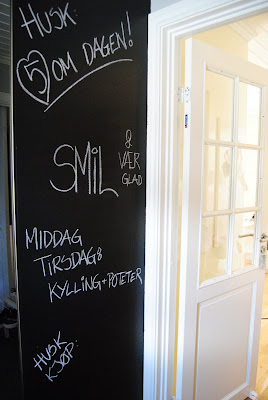 HUSK:
5 OM DAGEN!
SMIL
&
VÆR
GLAD
MIDDAG
TIRSDAG:
KYLLING+POTETER
HUSK
KJØP: